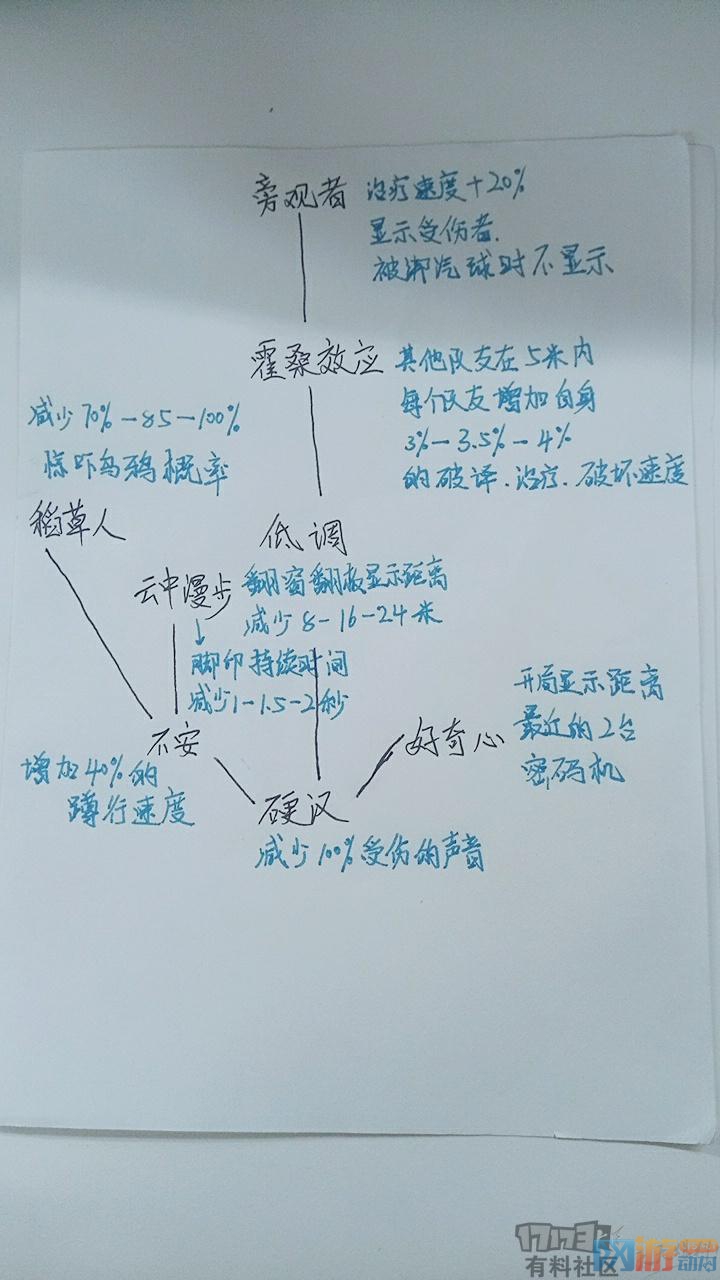 旁观者
治疗速度+20%
显示受伤者.
被绑汽球时不显示
霍桑效应
其他队友在5米内
每个队友增加自身
3%-3.5%-4%
的破译.治疗.破坏速度
减少70%-85-100%
惊吓乌鸦概率
稻草人
低调
翻窗翻板显示距离
减少8-16-24米
云中漫步
脚印持续时间
减少1-1.5-2秒
不安
增加40%的
蹲行速度
好奇心
开局显示距离
最近的2台
密码机
硬汉
减少100%受伤的声音
17173
有料社区
网游
动网